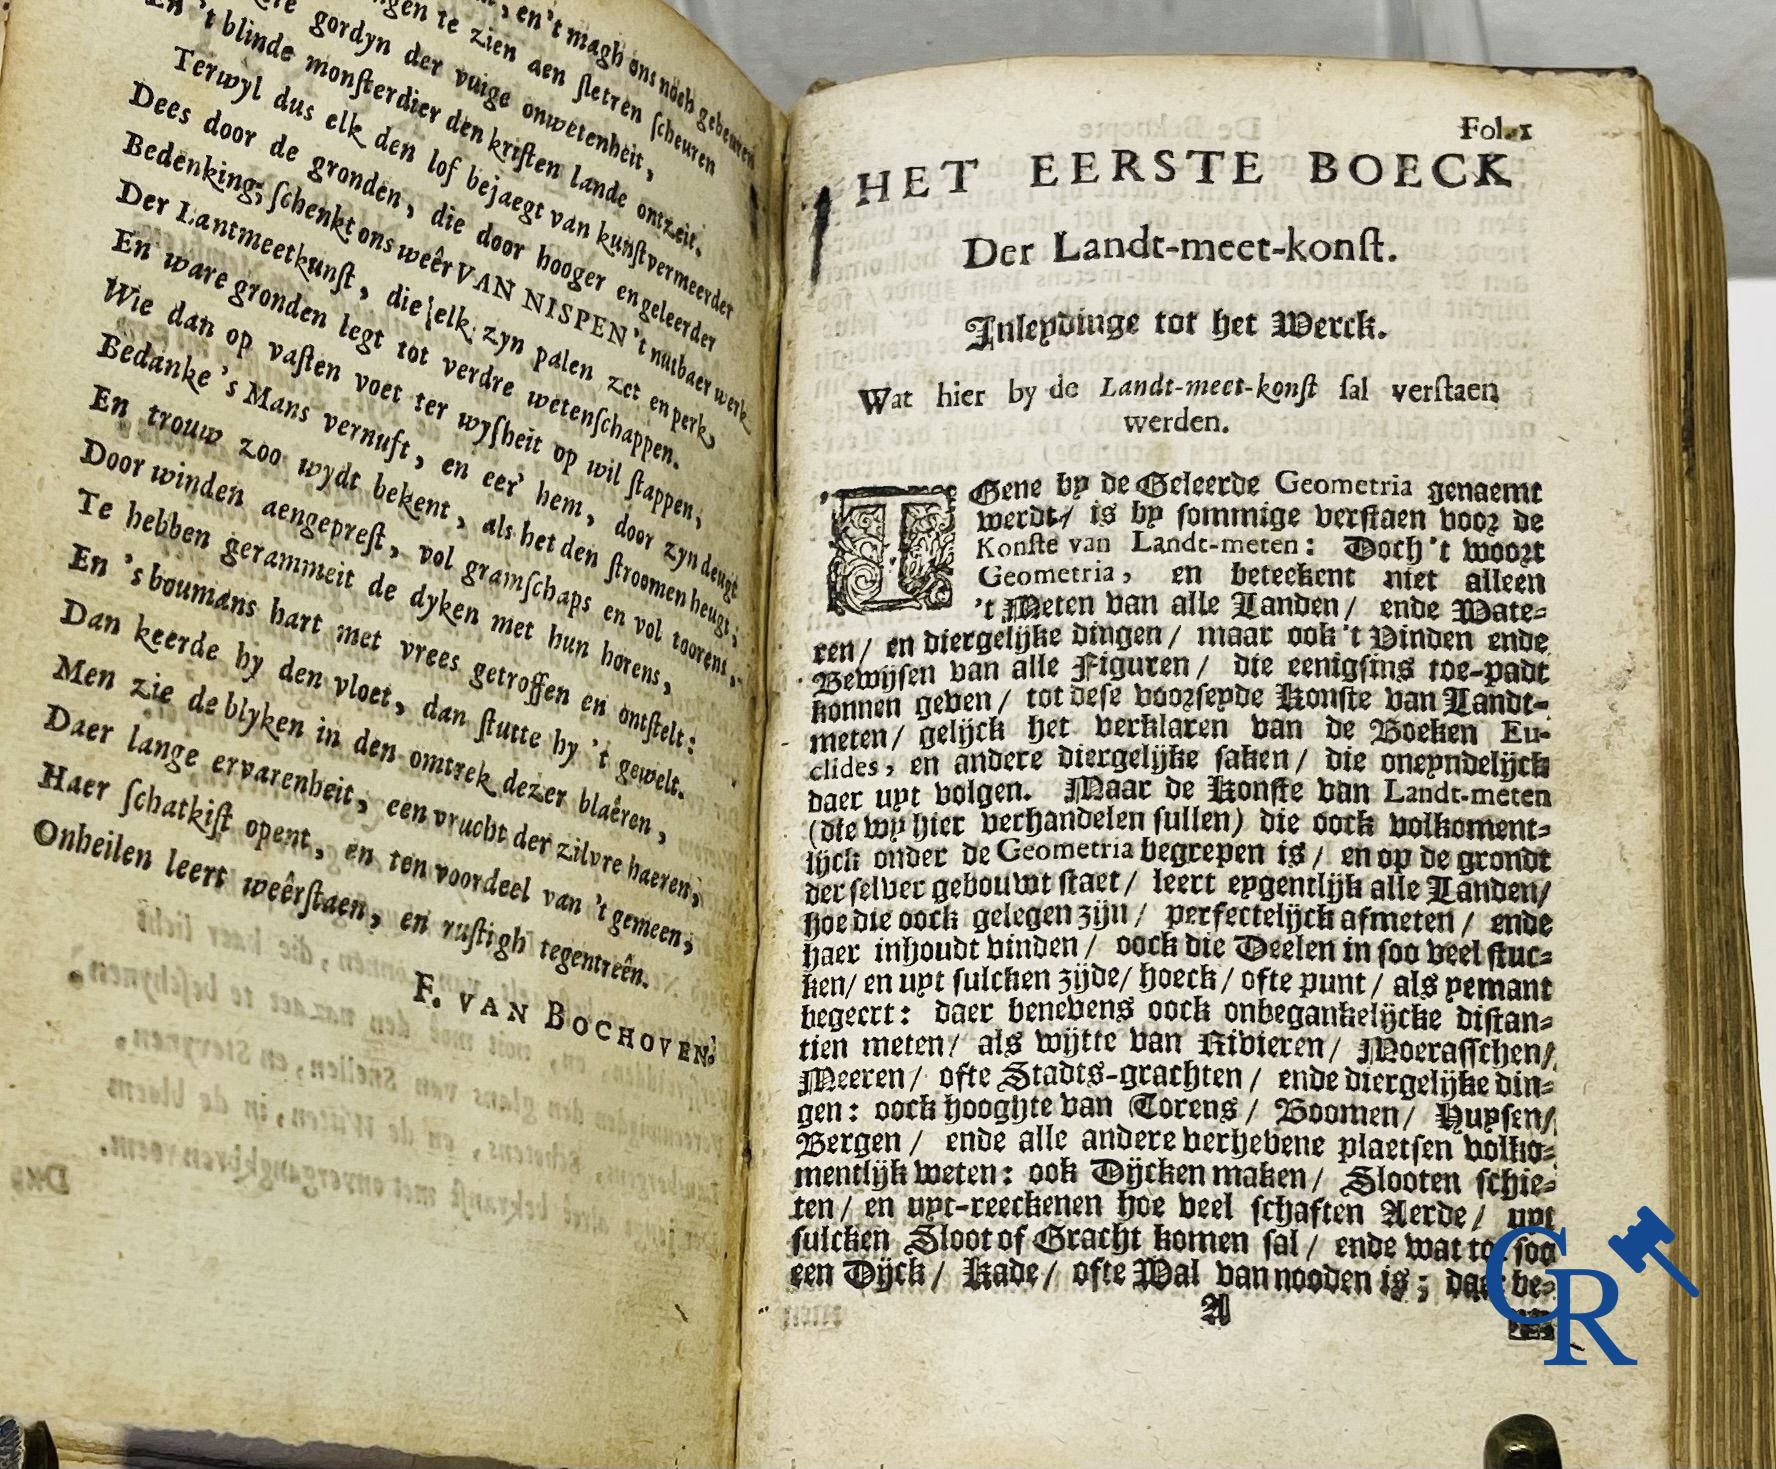 , en 't magh ons noch gebeuren
te zien aen sletren scheuren
gordyn der vuige onwetenheit,
En 't blinde monsterdier den kristen lande ontzeit.
Terwyl dus elk den lof bejaegt van kunstvermeerder
Dees door de gronden, die door hooger en geleerder
Bedenking; schenkt ons weêr VAN NISPEN 't nutbaer werk
Der Lantmeetkunst, die elk zyn palen zet en perk,
En ware gronden legt tot verdre wetenschappen.
Wie dan op vasten voet ter wysheit op wil stappen,
Bedanke 's Mans vernuft, en eer' hem, door zyn deugt
En trouw zoo wydt bekent, als het den stroomen heugt,
Door winden aengeprest, vol gramschaps en vol toorens,
Te hebben gerammeit de dyken met hun horens,
En 's boumans hart met vrees getroffen en ontstelt:
Dan keerde hy den vloet, dan stutte hy 't gewelt.
Men zie de blyken in den omtrek dezer blaêren,
Daer lange ervarenheit, een vrucht der zilvre haeren,
Haer schatkist opent, en ten voordeel van 't gemeen,
Onheilen leert weêrstaen, en rustigh tegentreên.
F. VAN BOCHOVEN.
Fol. 1
HET EERSTE BOECK
Der Landt-meet-konst.
Inleydinge tot het Werck.
Wat hier by de Landt-meet-konst sal verstaen
werden.
'T Gene by de Geleerde Geometria genaemt
werdt/ is by sommige verstaen voor de
Konste van Landt-meten: Doch 't woort
Geometria, en beteekent niet alleen
't Meten van alle Landen/ ende Wate-
ren/ en diergelijke dingen/ maar ook 't Vinden ende
Bewijsen van alle Figuren/ die eenigsins toe-padt
konnen geven/ tot dese voorseyde Konste van Landt-
meten/ gelijck het verklaren van de Boeken Eu-
clides, en andere diergelijke saken/ die oneyndelijck
daer uyt volgen. Maar de Konste van Landt-meten
(die wy hier verhandelen sullen) die oock volkoment-
lijck onder de Geometria begrepen is/ en op de grondt
der selver gebouwt staet/ leert eygentlijk alle Landen/
hoe die oock gelegen zijn/ perfectelijck afmeten/ ende
haer inhoudt vinden/ oock die Deelen in soo veel stuc-
ken/ en uyt sulcken zijde/ hoeck/ ofte punt/ als yemant
begeert: daer benevens oock onbegankelijcke distan-
tien meten/ als wijtte van Rivieren/ Moerasschen/
Meeren/ ofte Stadts-grachten/ ende diergelijke din-
gen: oock hooghte van Torens/ Boomen/ Huysen/
Bergen/ ende alle andere verhevene plaetsen volko-
mentlijk weten: ook Dijcken maken/ Slooten schie-
ten/ en uyt-reeckenen hoe veel schaften Aerde/ uyt
sulcken Sloot of Gracht komen sal/ ende wat tot soo
een Dijck/ Kade/ ofte Wal van nooden is; daer be-
A
CR